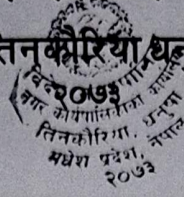 तिनकौरिया, धनु
२०७३
नगर कार्यपालिकाको कार्यालय
तिनकौरिया, धनुषा
मधेश प्रदेश, नेपाल
२०७३